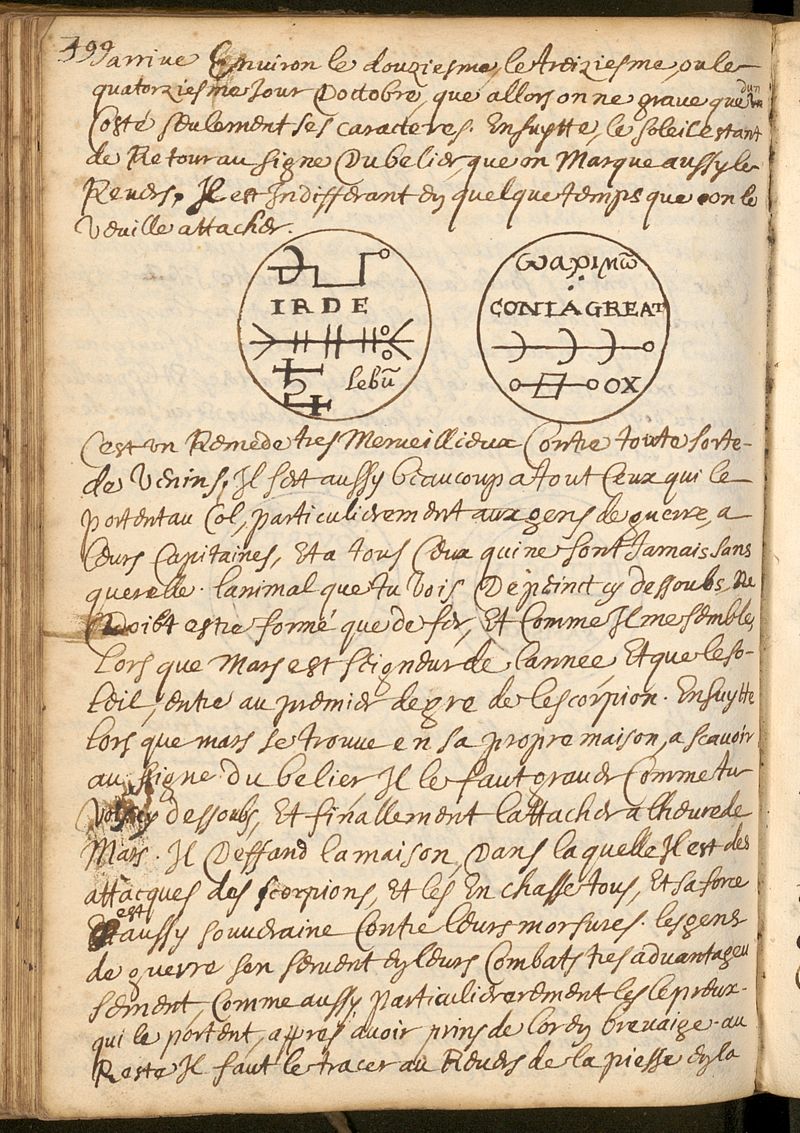 399
Jarriue Environ le douziesme, le treiziesme, ou le
quatorziesme Jour Doctobre, que allors on ne graue que dun
Costé seulement ses caracteres. Ensuytte, le soleil estant
de Retour au signe Du belier, que on Marque aussy le
Reuers, Il est Indifferant en quelque temps que on le
Veuille attacher.
IRDE
Lebū
CONIAGREAT
OX
C'est un Remede tres Merueillieux Contre toutte sorte
de Venins, Il sert aussy beaucoup a tout Ceux qui le
portent au Col, particulierement aux gens de guerre, a
leurs Capitaines, Et a tous Ceux qui ne sont Jamais sans
querelle. lanimal que tu Vois Depeinct cy dessoubs, Ne
Doibt estre formé que de fer, Et Comme Il me semble,
Lors que Mars est seigneur de lannee, Et que le so-
leil, entre au premier degre de lescorpion. Ensuytte
lors que mars se trouue en sa propre maison, a scauoir
au signe du belier, Il le faut grauer Comme tu
Vois cy dessoubs, Et finallement lattacher a lheure de
Mars. Il Deffand la maison, Dans laquelle Il est des
attacques des scorpions, Et les En chasse tous, Et sa force
est aussy souueraine Contre leurs morsures. les gens
de guerre sen seruent en leurs Combats tres aduantageu
sement, Comme aussy particulierement les lepreux
qui le portent, apres auoir prins de lor en breuaige. au
Reste Il faut le tracer au Reuers de la piesse en la